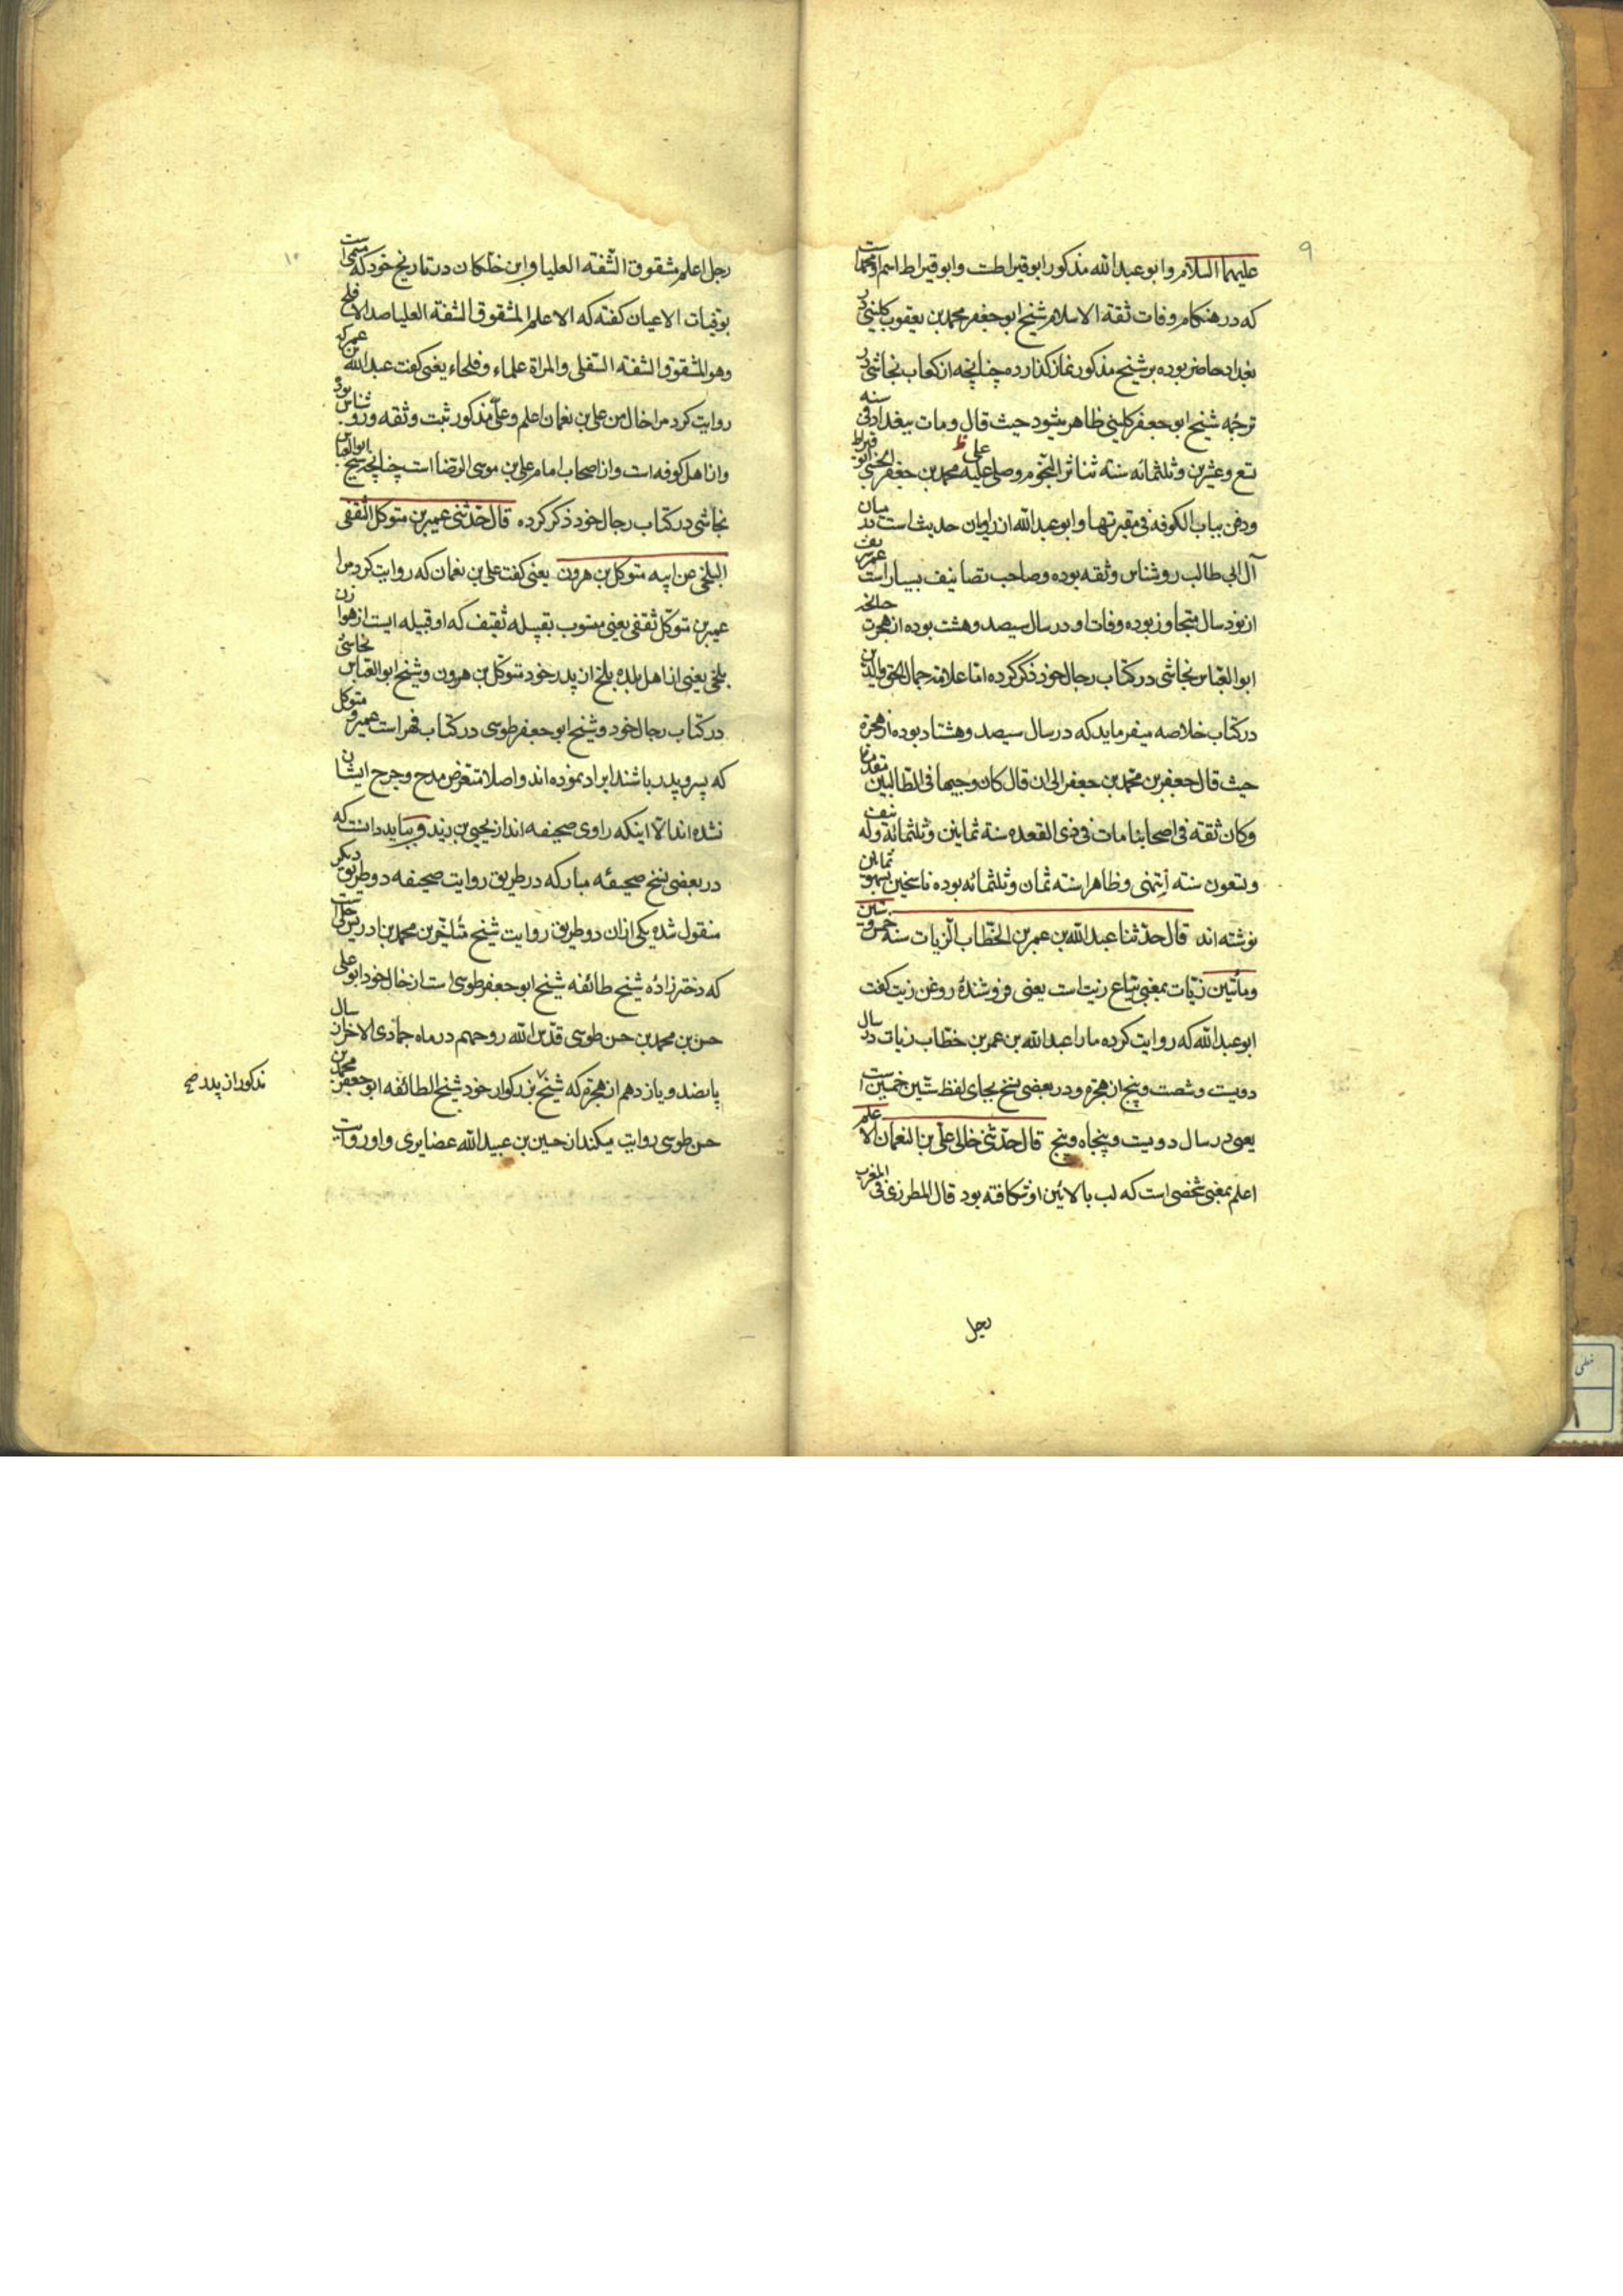 ۹
علیهما السلام و ابو عبدالله مذکور ابو قیراطست و ابو قیراط اسم او محمدست
که در هنکام وفات ثقة الاسلام شیخ ابو جعفر محمد بن یعقوب کلینی در
بغداد حاضر بوده بر شیخ مذکور نماز کذارده چنانچه از کتاب نجاشی در
ترجمه شیخ ابو جعفر کلینی ظاهر میشود حیث قال و مات ببغداد فی سنه
تسع و عشرین و ثلثمائه سنة تناثر النجوم و صلی علیه محمد بن جعفر الحسنی ابو قیراط
علی ظ
و دفن بباب الکوفه فی مقبرتها و ابو عبدالله از راویان حدیث است در میان
آل ابی طالب روشناس و ثقه بوده و صاحب تصانیف بسیار است عمر شریف
از نود سال متجاوز بوده وفات او در سال سیصد و هشت بوده از هجرت چنانچه
ابو العباس نجاشی در کتاب رجال خود ذکر کرده اما علامه جمال الحق والدین
در کتاب خلاصه میفرماید که در سال سیصد و هشتاد بوده از هجرة
حیث قال جعفر بن محمد بن جعفر الی ان قال کان وجیها فی الطالبین متقدما
و کان ثقة فی اصحابنا مات فی ذی القعده سنة ثمانین و ثلثمائة و له نیف
و تسعون سنته انتهی و ظاهرا سنته ثمان و ثلثمائه بوده ناسخین بسهو ثمانین
نوشته اند قال حدثنا عبدالله بن عمر بن الخطاب الزیات سنه خمس و ستین
و مأتین زیات بمعنی بیاع زیت است یعنی فروشندۀ روغن زیت کفت
ابو عبدالله که روایت کرده ما را عبدالله بن عمر بن خطاب زیات در سال
دویست و شصت و پنج از هجرة و در بعضی نسخ بجای لفظ ستین خمسین است
یعنی در سال دویست و پنجاه و پنج قال حدثنی خالی علی بن النعمان الاعلم
اعلم بمعنی شخصی است که لب بالائین او شکافته بود قال المطرزی فی المغرب
رجل
۱۰
رجل اعلم مشقوق الشفه العلیا و ابن خلکان در تاریخ خود که مسمی است
بوفیات الاعیان کفته که الاعلم المشقوق الشفة العلیا ضد الافلح
و هو المشقوق الشفه السفلی والمراة علماء و فلحاء یعنی کفت عبدالله بن عمر که
روایت کرد مرا خال من علی بن نعمان اعلم و علی مذکور ثبت و ثقه و رو شناس بوده
و از اهل کوفه است و از اصحاب امام علی بن موسی الرضا است چنانچه شیخ ابو العباس
نجاشی در کتاب رجال خود ذکر کرده قال حدثنی عمیر بن متوکل الثقفی
البلخی عن ابیه متوکل بن هرون یعنی کفت علی بن نعمان که روایت کرد مرا
عمیر بن متوکل ثقفی یعنی منسوب بقبیله ثقیف که او قبیله ایست از هوازن
بلخی یعنی از اهل بلدهٔ بلخ از پدر خود متوکل بن هرون و شیخ ابو العباس نجاشی
در کتاب رجال خود و شیخ ابو جعفر طوسی در کتاب فهرست عمیر و متوکل
که پسر و پدر باشند ایراد نموده اند و اصلا متعرض مدح و جرح ایشان
نشده اند الا اینکه راوی صحیفه اند از یحیی بن زید و بباید دانست که
در بعضی نسخ صحیفهٔ مبارکه در طریق روایت صحیفه دو طریق دیکر
منقول شده یکی از ان دو طریق روایت شیخ متاخر بن محمد بن ادریس حلی است
که دختر زادهٔ شیخ طائفه شیخ ابو جعفر طوسی است از خال خود ابو علی
حسن بن محمد بن حسن طوسی قدس الله روحهم در ماه جمادی الاخر از سال
پانصد و یازدهم از هجرة که شیخ بزرکوار خود شیخ الطائفه ابو جعفر محمد بن
حسن طوسی روایت میکند از حسین بن عبیدالله غضایری و او روایت
مذکور از پدر صح
خطی
۱